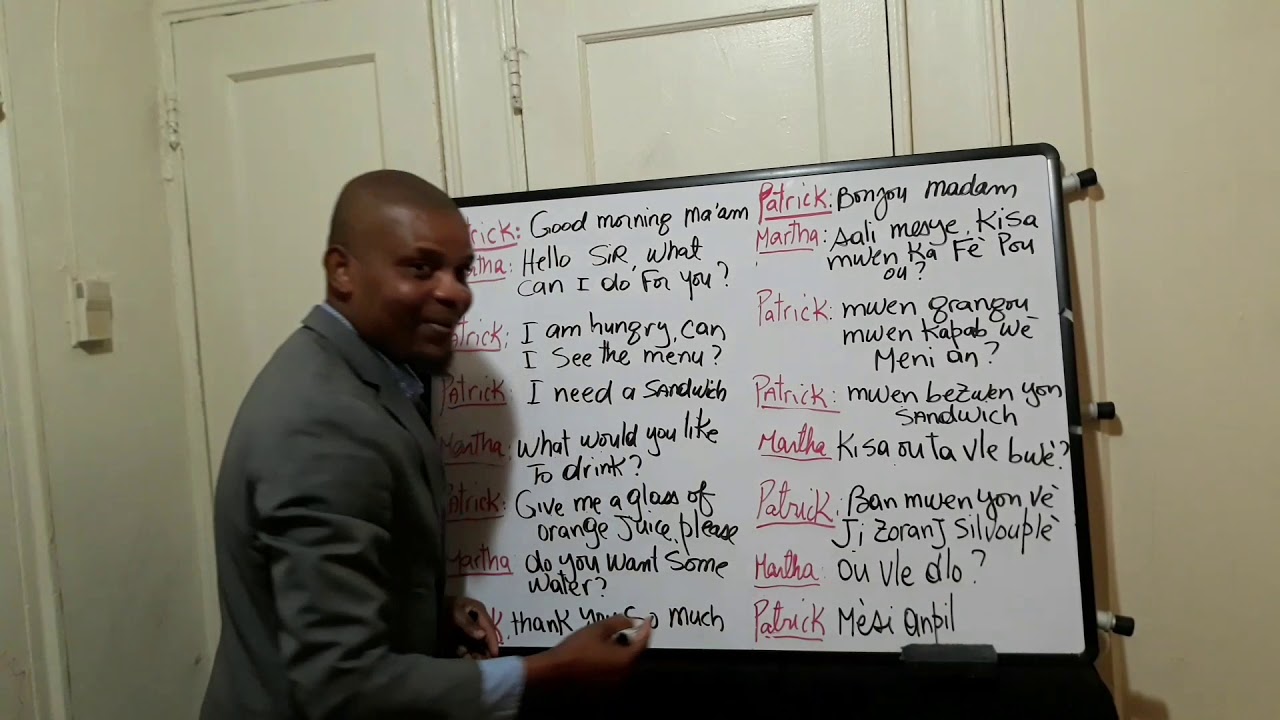 trick: Good morning ma'am
tha: Hello SiR, what
can I do For you?
atrick: I am hungry, can
I See the menu?
PAtrick: I need a SANdwich
Martha: What would you like
To drink?
Patrick: Give me a glass of
orange Juice, please
Martha do you want Some
Water?
K, thank you so much
Patrick: Bonzou madam
Martha: Sali mesye, Kisa
mwen Ka Fè Pou
ou?
Patrick: mwen grangou
mwen Kapab wè
Meni an?
PAtrick: mwen bezwen yon
SANDWICH
Martha Kisa ou ta vle bwè?
Patrick: Ban mwen yon vè
Ji ZoranJ Silvouplè
Martha: Ou Vle dlo?
Patrick Mèsi Anpil